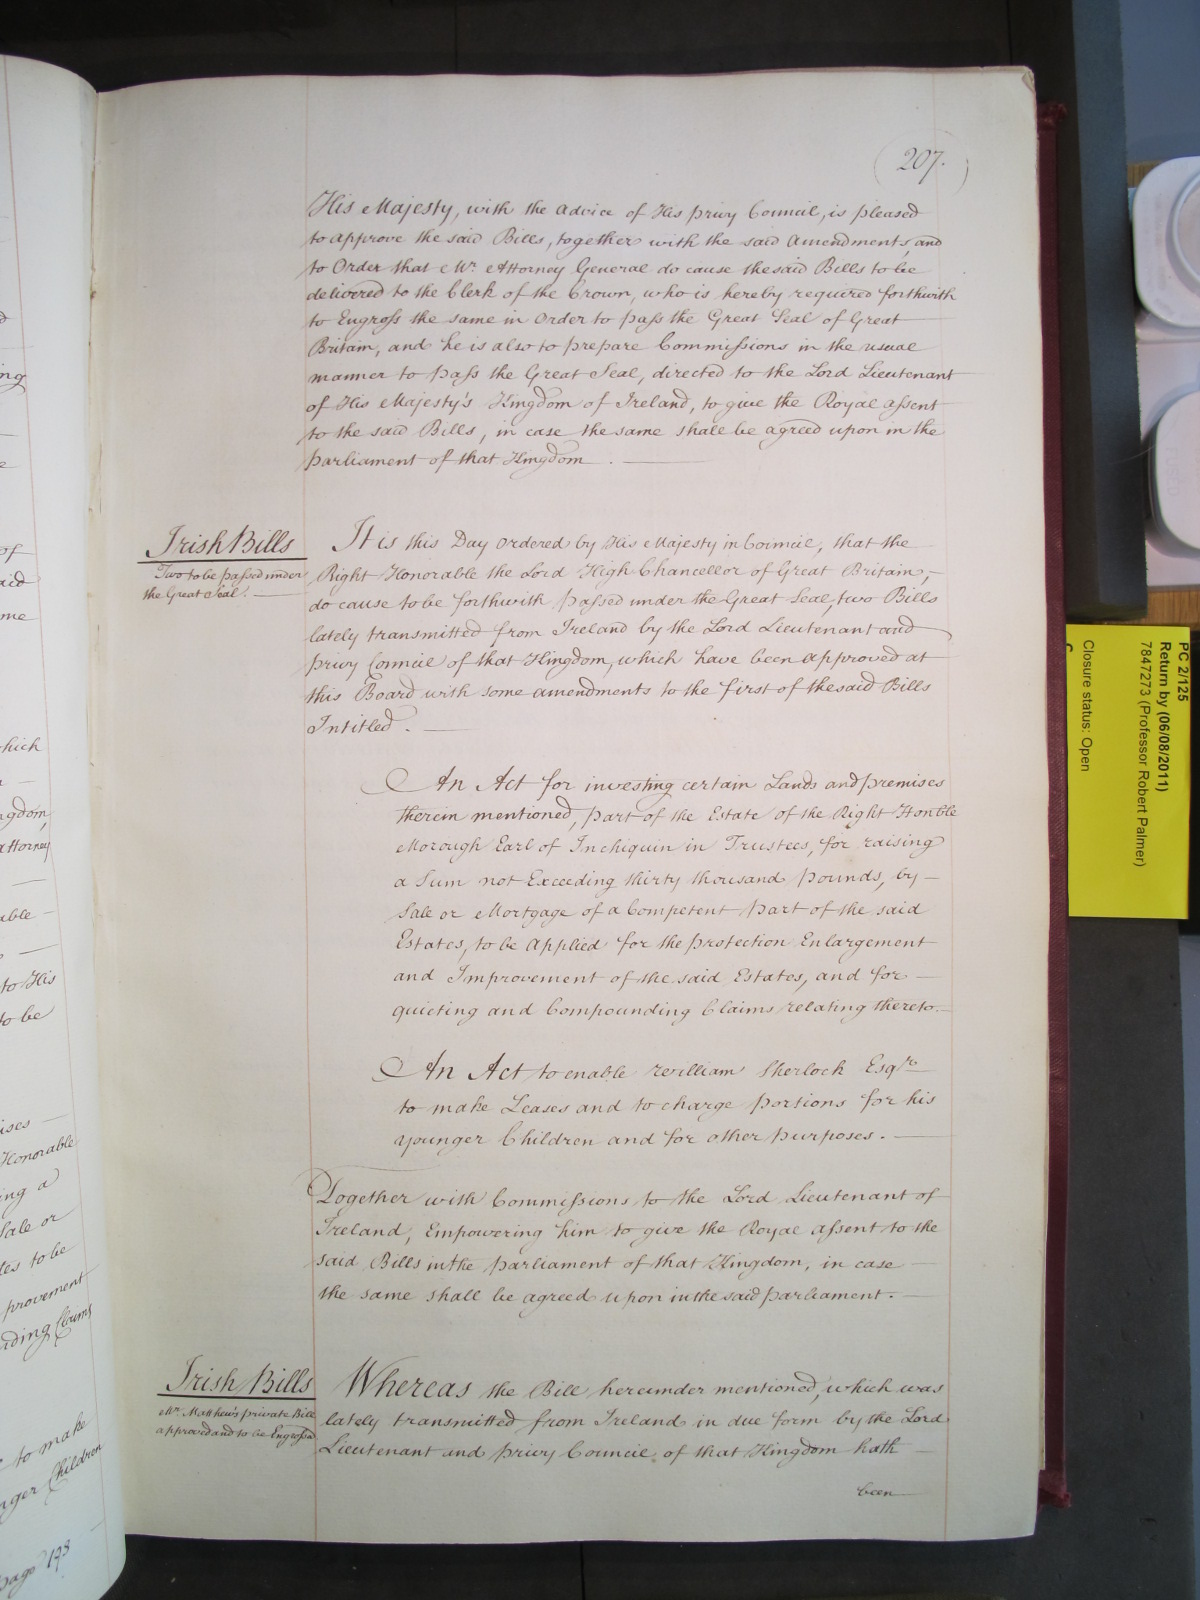 207.
His Majesty, with the Advice of His privy Council, is pleased
to approve the said Bills, together with the said Amendments, and
to Order that Mr. Attorney General do cause the said Bills to be
delivered to the Clerk of the Crown, who is hereby required forthwith
to Engross the same in Order to pass the Great Seal of Great
Britain, and he is also to prepare Commissions in the usual
manner to pass the Great Seal, directed to the Lord Lieutenant
of His Majesty's Kingdom of Ireland, to give the Royal assent
to the said Bills, in case the same shall be agreed upon in the
parliament of that Kingdom.
Irish Bills
Two to be passed under
the Great Seal.
It is this Day Ordered by His Majesty in Council, that the
Right Honorable the Lord High Chancellor of Great Britain,
do cause to be forthwith passed under the Great Seal, two Bills
lately transmitted from Ireland by the Lord Lieutenant and
privy Council of that Kingdom, which have been approved at
this Board with some amendments to the first of the said Bills
Intitled.
An Act for investing certain Lands and premises
therein mentioned, part of the Estate of the Right Honble
Morough Earl of Inchiquin in Trustees, for raising
a Sum not Exceeding thirty thousand pounds, by
Sale or Mortgage of a Competent part of the said
Estates, to be applied for the protection Enlargement
and Improvement of the said Estates, and for
quieting and Compounding Claims relating thereto.
An Act to enable William Sherlock Esqr.
to make Leases and to charge portions for his
younger Children and for other purposes.
Together with Commissions to the Lord Lieutenant of
Ireland, Empowering him to give the Royal assent to the
said Bills in the parliament of that Kingdom, in case
the same shall be agreed upon in the said parliament.
Irish Bills
Mr. Matthew's private Bill
approved and to be Engrossed
Whereas the Bill hereunder mentioned, which was
lately transmitted from Ireland in due form by the Lord
Lieutenant and privy Council of that Kingdom hath
been
ng
of
said
me
hich
ngdom,
Attorney
able
to His
to be
ises
Honorable
ing a
Sale or
tes to be
provement
nding Claims
to make
nger Children
page 193
PC 2/125
Return by (06/08/2011)
7847273 (Professor Robert Palmer)
Closure status: Open